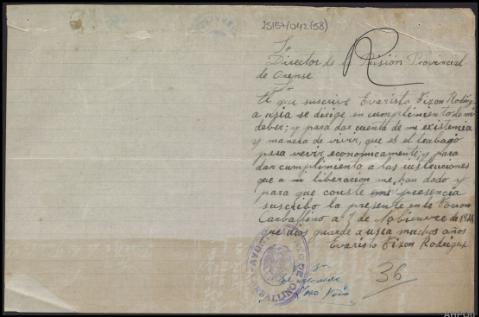 25157/042(58)
Sr
Director de la Prisión Provincial
de Orense
El que suscrive Evaristo Fixon Rodrig
a usia se dirige en cumplimiento de mi
deber; y para dar cuenta de mi existencia
y manera de vivir, que es el trabago
para vevir, economicamente y para
dar cumplimento a las
que a mi liberacion me han dado y
para que conste mi presencia
suscribo la presente ante
Carballino a 7 de Nobiembre de
guarde a usia muchos años
Evaristo Fixon Rodriguez
36
AYUNTO
CARBALLINO